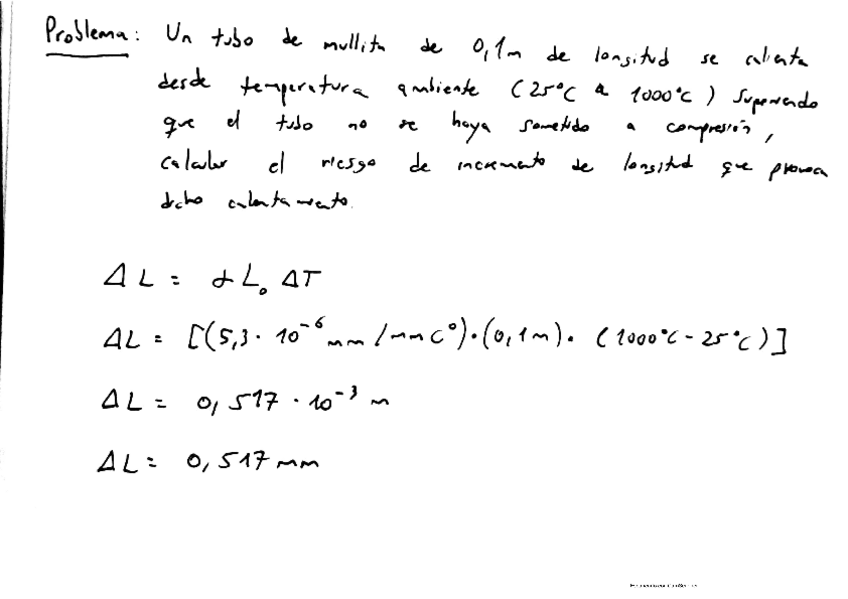 Problema: Un tubo de mullita de 0,1m de longitud se calienta
desde temperatura ambiente (25°C a 1000°C) Suponiendo
que el tubo no se haya sometido a compresión,
calcular el riesgo de incremento de longitud que provoca
dicho calentamiento.
Δ L = α L₀ ΔT
ΔL = [(5,3 · 10⁻⁶ mm / mm C°) · (0,1m) · (1000°C - 25°C)]
ΔL = 0,517 · 10⁻³ m
ΔL = 0,517 mm